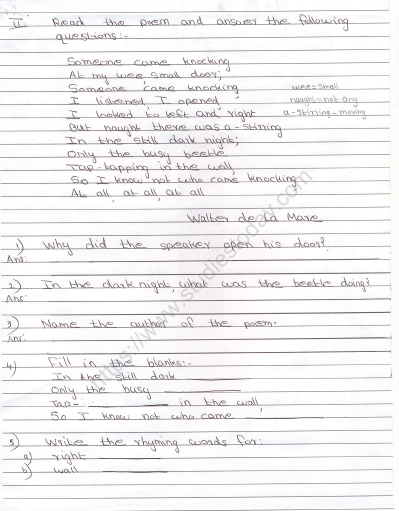 II Read the poem and answer the following
questions:-
Someone came knocking
At my wee small door;
Someone came knocking wee = small
I listened, I opened, naught = not any
I looked to left and right a-stirring - moving
But naught there was a-stirring
In the still dark night;
Only the busy beetle
Tap-tapping in the wall,
So I know not who came knocking
At all, at all, at all
Walter de la Mare
1) Why did the speaker open his door?
Ans:
2) In the dark night, what was the beetle doing?
Ans:
3) Name the author of the poem.
Ans:
4) Fill in the blanks:-
In the still dark
Only the busy
Tap- in the wall,
So I know not who came
5) Write the rhyming words for:
a) right
b) wall
https://www.studiestoday.com